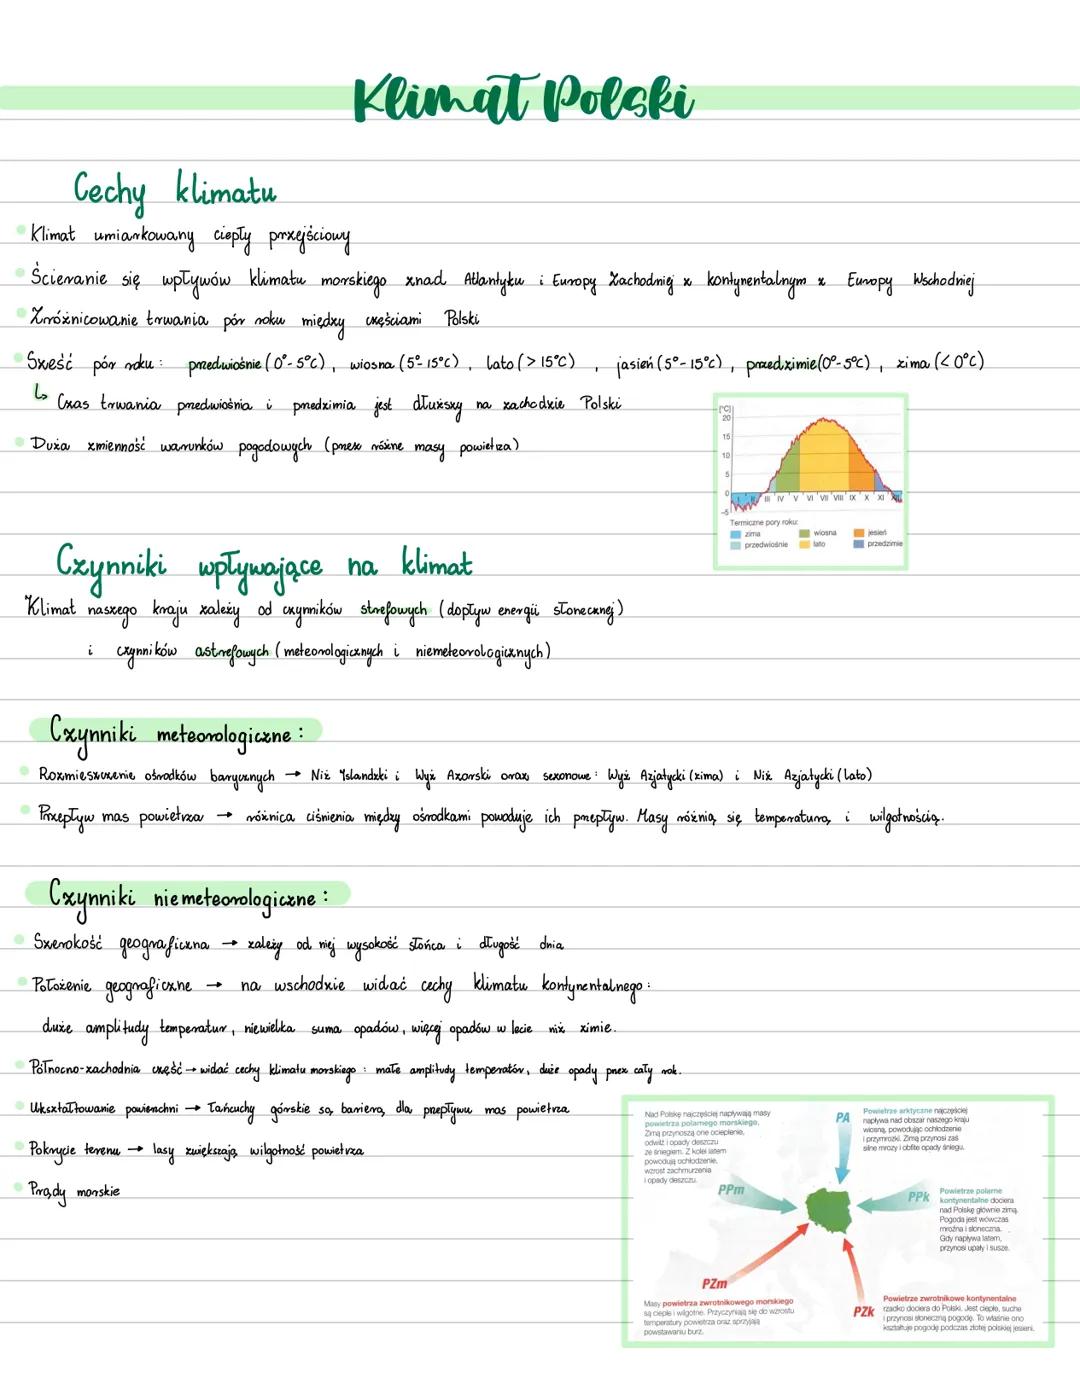 Klimat Polski
Cechy klimatu
Klimat umiarkowany ciepły przejściowy
Ścieranie się wpływów klimatu morskiego znad Atlantyku i Europy Zachodniej z kontynentalnym z Europy Wschodniej
Zróżnicowanie trwania pór roku między częściami Polski
Sześć pór roku: przedwiośnie (0°-5°C), wiosna (5°-15°C), lato (>15°C), jasień (5°-15°C), przedzimie (0°-5°C), zima (<0°C)
↳ Czas trwania przedwiośnia i przedzimia jest dłuższy na zachodzie Polski
Duża zmienność warunków pogodowych (przez różne masy powietrza)
[°C]
20
15
10
5
0
-5
I II III IV V VI VII VIII IX X XI XII
Termiczne pory roku:
zima wiosna jesień
przedwiośnie lato przedzimie
Czynniki wpływające na klimat
Klimat naszego kraju zależy od czynników strefowych (dopływ energii słonecznej)
i czynników astrefowych (meteorologicznych i niemeteorologicznych)
Czynniki meteorologiczne:
Rozmieszczenie ośrodków barycznych → Niż Islandzki i Wyż Azorski oraz sezonowe: Wyż Azjatycki (zima) i Niż Azjatycki (lato)
Przepływ mas powietrza → różnica ciśnienia między ośrodkami powoduje ich przepływ. Masy różnią się temperaturą i wilgotnością.
Czynniki niemeteorologiczne:
Szerokość geograficzna → zależy od niej wysokość słońca i długość dnia
Położenie geograficzne → na wschodzie widać cechy klimatu kontynentalnego:
duże amplitudy temperatur, niewielka suma opadów, więcej opadów w lecie niż zimie.
Północno-zachodnia część → widać cechy klimatu morskiego: małe amplitudy temperatór, duże opady przez cały rok.
Ukształtowanie powierzchni → Łańcuchy górskie są barierą dla przepływu mas powietrza
Pokrycie terenu → lasy zwiększają wilgotność powietrza
Prądy morskie
Nad Polskę najczęściej napływają masy
powietrza polarnego morskiego.
Zimą przynoszą one ocieplenie,
odwilż i opady deszczu
ze śniegiem. Z kolei latem
powodują ochłodzenie,
wzrost zachmurzenia
i opady deszczu.
PPm
PA
Powietrze arktyczne najczęściej
napływa nad obszar naszego kraju
wiosną, powodując ochłodzenie
i przymrozki. Zimą przynosi zaś
silne mrozy i obfite opady śniegu.
PPk
Powietrze polarne
kontynentalne dociera
nad Polskę głównie zimą.
Pogoda jest wówczas
mroźna i słoneczna.
Gdy napływa latem,
przynosi upały i susze.
PZm
Masy powietrza zwrotnikowego morskiego
są ciepłe i wilgotne. Przyczyniają się do wzrostu
temperatury powietrza oraz sprzyjają
powstawaniu burz.
PZk
Powietrze zwrotnikowe kontynentalne
rzadko dociera do Polski. Jest ciepłe, suche
i przynosi słoneczną pogodę. To właśnie ono
kształtuje pogodę podczas złotej polskiej jesieni.